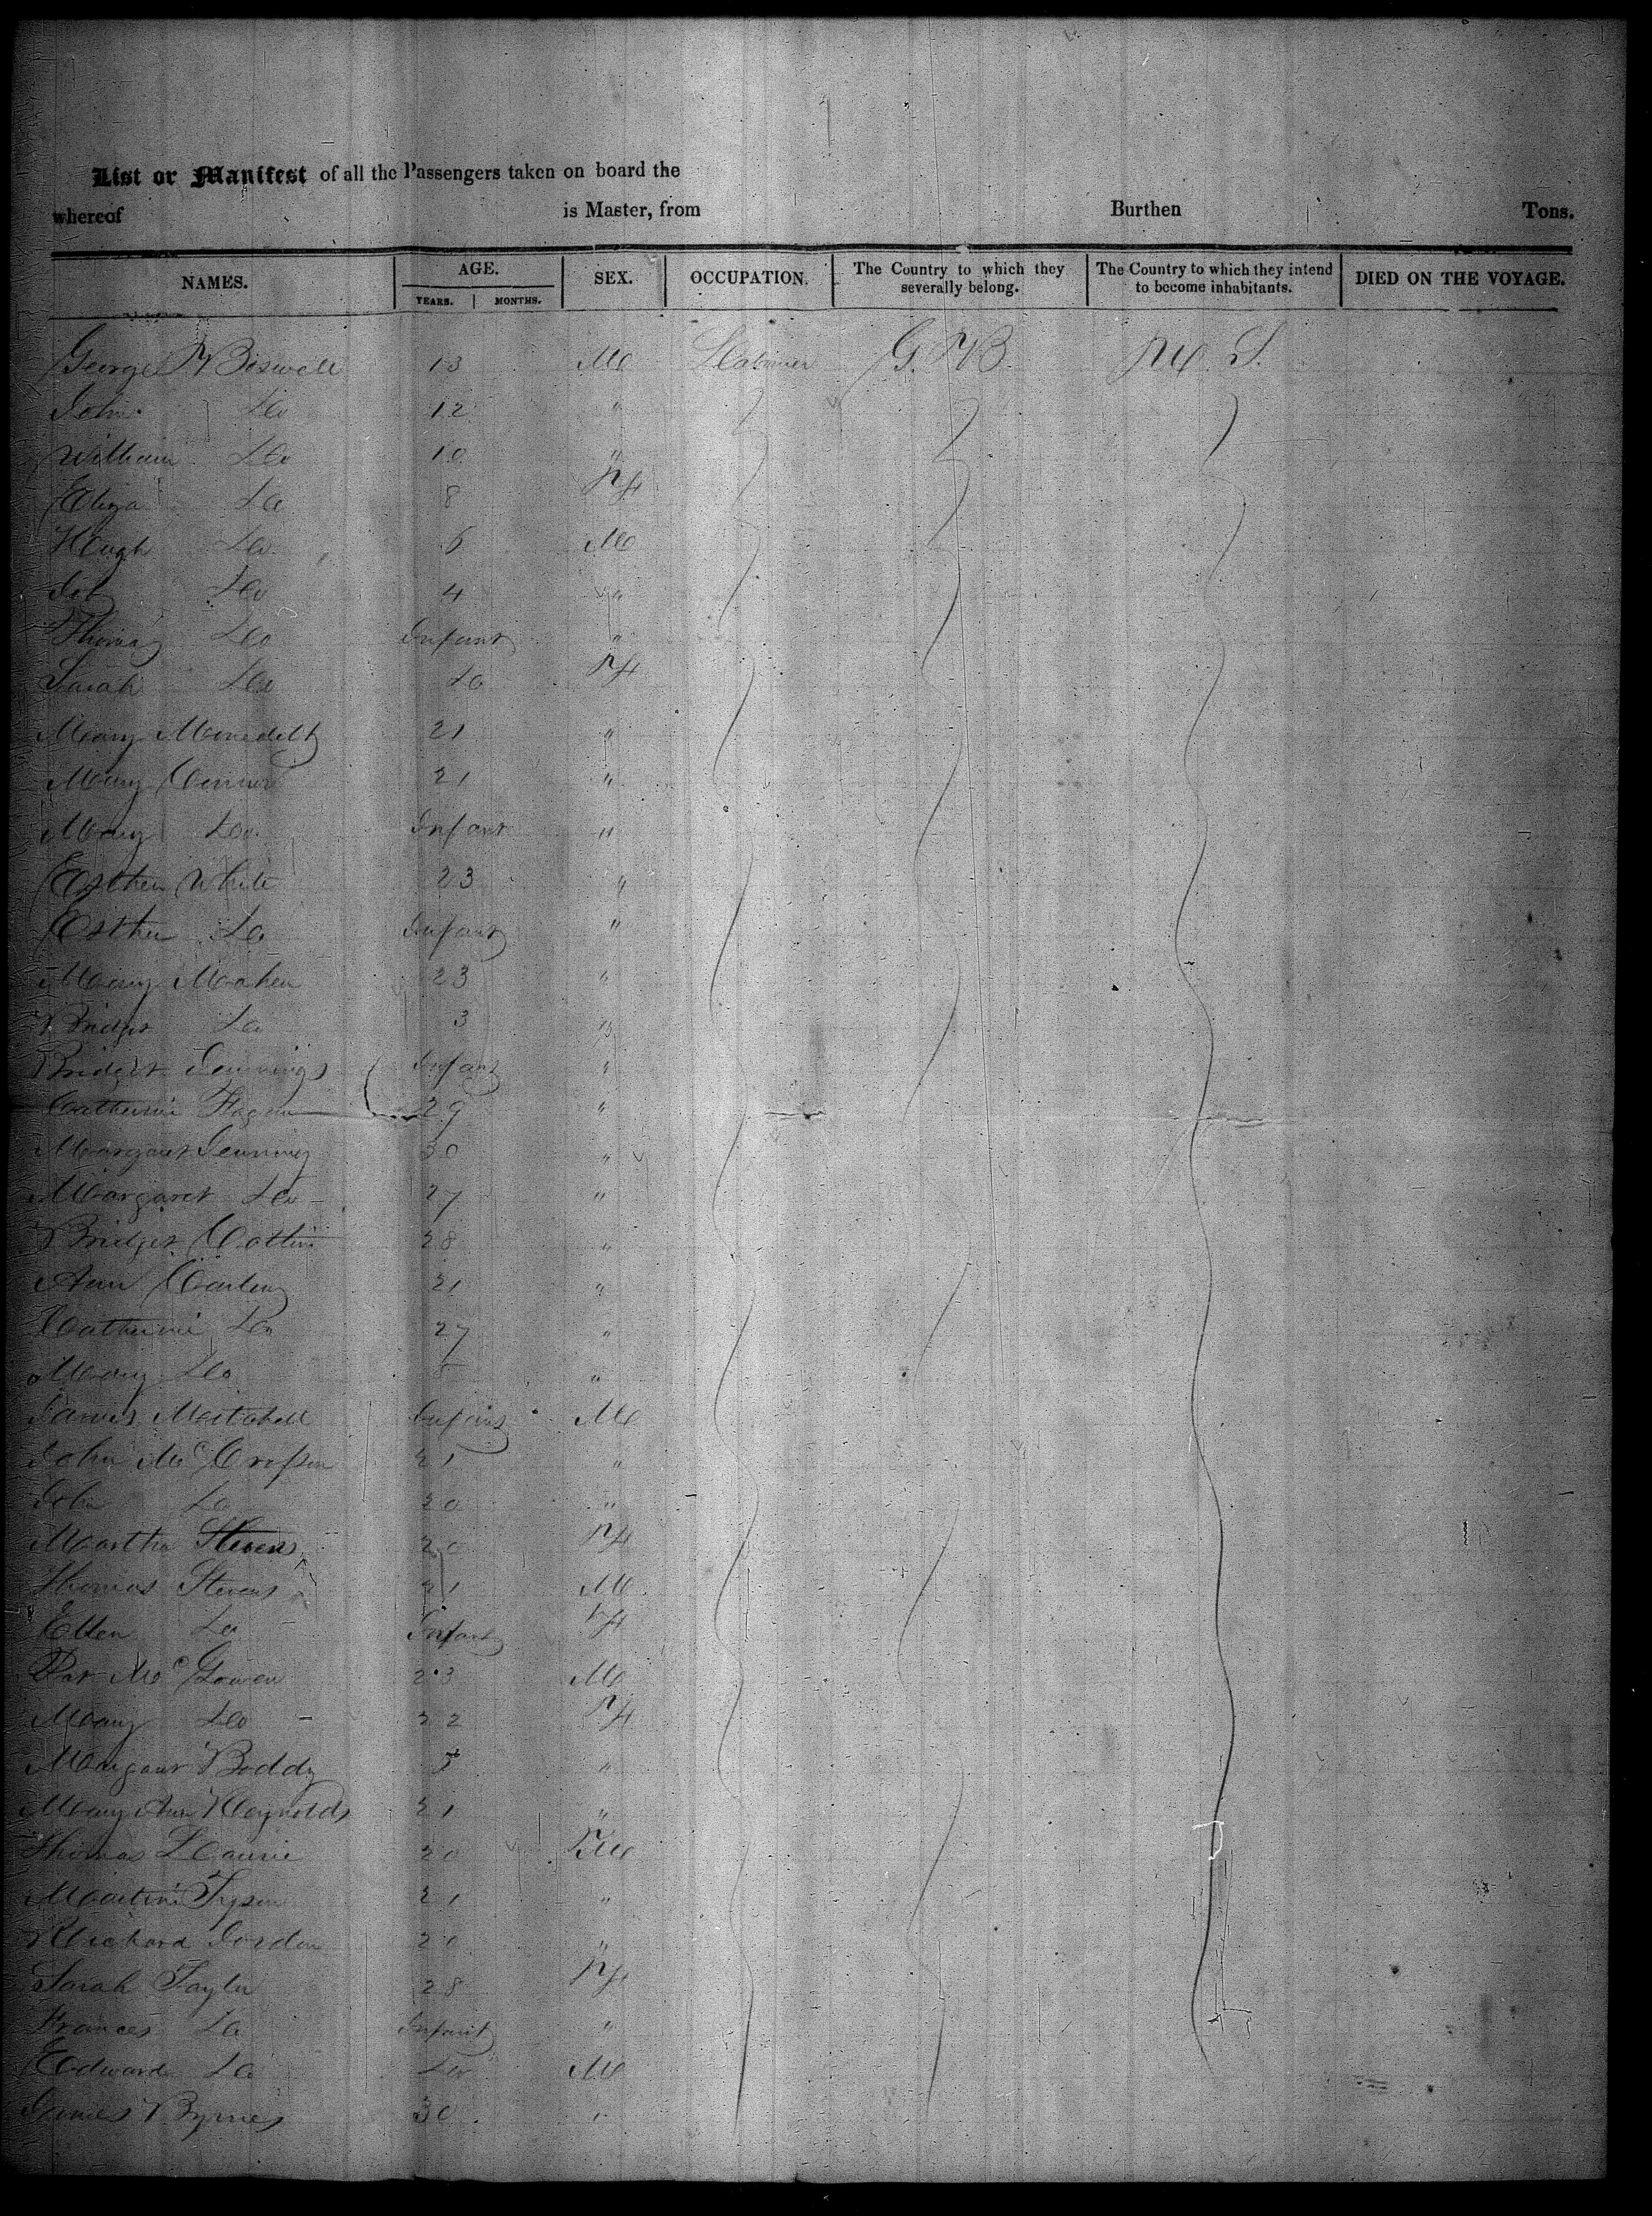 List or Manifest of all the Passengers taken on board the
whereof is Master, from Burthen Tons.
NAMES. AGE. SEX. OCCUPATION. The Country to which they severally belong. The Country to which they intend to become inhabitants. DIED ON THE VOYAGE.
YEARS. MONTHS.
George Boswell 13 M Labourer G. B. U. S.
John Do 12 "
William Do 10 "
Eliza Do 8 F
Hugh Do 6 M
Do 4 "
Thomas Do Infant "
Sarah Do Do F
Mary 21 "
Mary Conner 21 "
Mary Do Infant "
Esther White 23 "
Esther Do Infant "
Mary Maher 23 "
Bridget Do 3 "
Bridget Jennings Infant "
Catherine 29 "
Margaret Jennings 30 "
Margaret Do 27 "
Bridget 28 "
Ann 21 "
Catherine Do 27 "
Mary Do "
James Mitchell Infant M
John 21 "
John Do 20 "
Martha Stevens 20 F
Thomas Stevens 21 M
Ellen Do Infant F
Pat McGowen 23 M
Mary Do 22 F
Margaret Boddy "
Mary Ann Reynolds 21 "
Thomas 20 M
Martin 21 "
Richard Jordan 20 "
Sarah Taylor 28 F
Frances Do Infant "
Edward Do Do M
James Byrnes 30 "